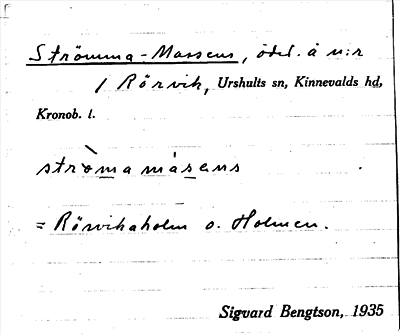 Strömma-Massens, ödel. å n:r
1 Rörvik, Urshults sn, Kinnevalds hd,
Kronob. l.
stròmamásens
= Rörvikaholm o. Holmen.
Sigvard Bengtson, 1935